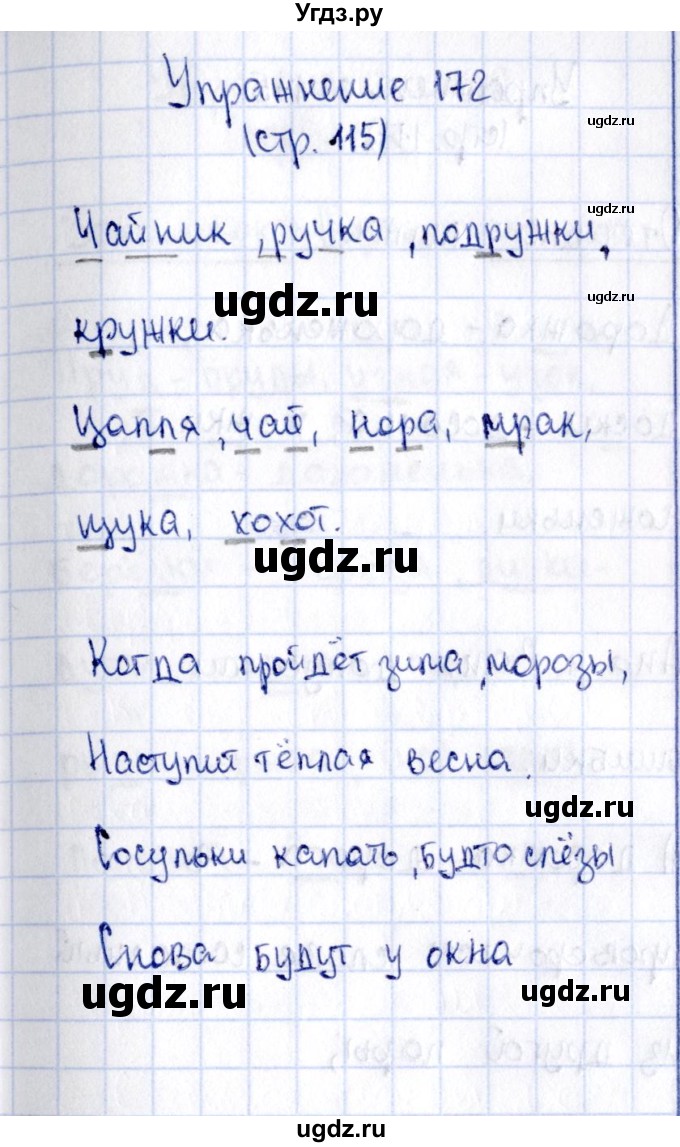 Угдз.ру
Упражнение 172
ugdz.ru
(стр. 115)
ugdz.ru
Чайник, ручка, подружки,
ugdz.ru
ugdz.ru
кружки.
Цапля, чай, нора, мрак,
щука, хохот.
ugdz.ru
Когда пройдёт зима, морозы,
Наступит тёплая весна.
ugdz.ru
Сосульки капать, будто слёзы
Снова будут у окна
ugdz.ru
ugdz.ru
ugdz.ru